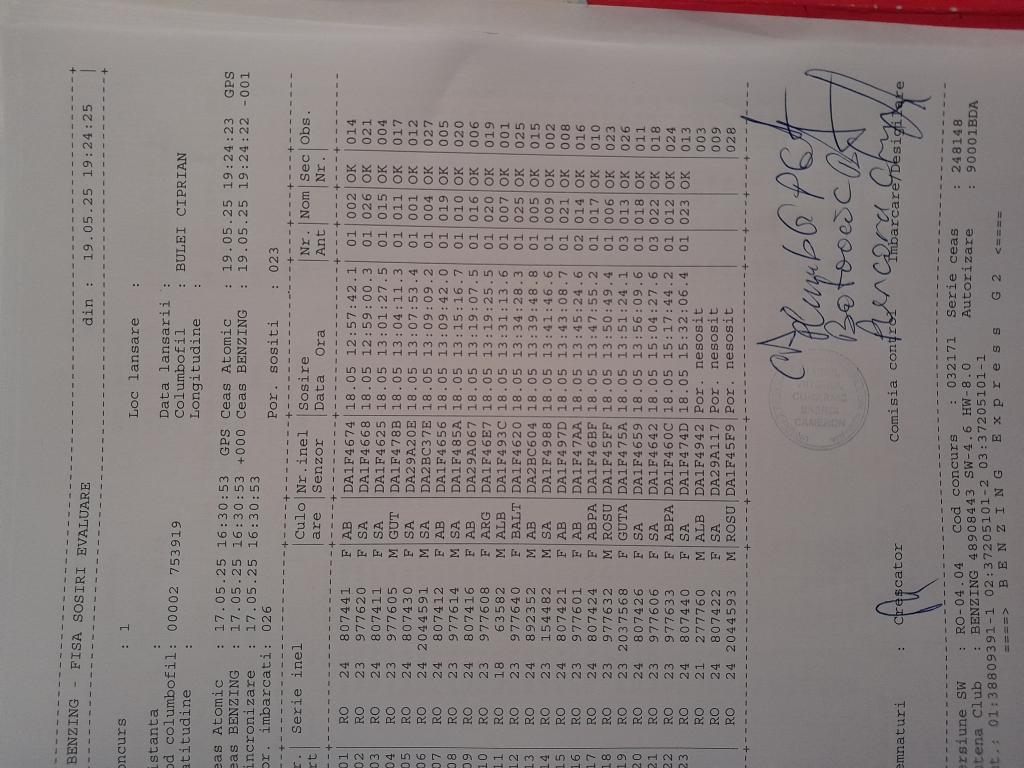 BENZING - FISA SOSIRI EVALUARE din : 19.05.25 19:24:25
oncurs : 1 Loc lansare :
istanta : Data lansarii :
od columbofil: 00002 753919 Columbofil : BULEI CIPRIAN
atitudine : Longitudine :
eas Atomic : 17.05.25 16:30:53 GPS Ceas Atomic : 19.05.25 19:24:23 GPS
eas BENZING : 17.05.25 16:30:53 +000 Ceas BENZING : 19.05.25 19:24:22 -001
incronizare : 17.05.25 16:30:53
or. imbarcati: 026 Por. sositi : 023
r. Serie inel Culo Nr.inel Sosire Nr. Nom Sec Obs.
rt are Senzor Data Ora Ant Nr.
01 RO 24 807441 F AB DA1F4674 18.05 12:57:42.1 01 002 OK 014
02 RO 23 977620 F SA DA1F4668 18.05 12:59:00.3 01 026 OK 021
03 RO 24 807411 F SA DA1F4625 18.05 13:01:27.5 01 015 OK 004
04 RO 23 977605 M GUT DA1F478B 18.05 13:04:11.3 01 011 OK 017
05 RO 24 807430 F SA DA29A20E 18.05 13:07:53.4 01 001 OK 012
06 RO 24 2044591 M SA DA2BC37E 18.05 13:09:09.2 01 004 OK 027
07 RO 24 807412 F AB DA1F4656 18.05 13:09:42.0 01 019 OK 005
08 RO 23 977614 M SA DA1F485A 18.05 13:15:16.7 01 010 OK 020
09 RO 24 807416 F AB DA29A067 18.05 13:19:07.5 01 016 OK 006
10 RO 23 977608 F ARG DA1F46E7 18.05 13:19:25.5 01 020 OK 019
11 RO 18 63582 M ALB DA1F493C 18.05 13:31:13.6 01 007 OK 001
12 RO 23 977640 F BALT DA1F4620 18.05 13:34:28.3 01 025 OK 025
13 RO 24 892352 M SA DA2BC604 18.05 13:39:48.8 01 005 OK 015
14 RO 23 154482 M SA DA1F4988 18.05 13:41:46.6 01 009 OK 002
15 RO 24 807421 F AB DA1F497D 18.05 13:43:08.7 01 021 OK 008
16 RO 23 977601 F AB DA1F47AA 18.05 13:45:24.6 02 014 OK 016
17 RO 24 807424 F ABPA DA1F46BF 18.05 13:47:55.2 01 017 OK 010
18 RO 23 977632 M ROSU DA1F45FF 18.05 13:50:49.4 01 006 OK 023
RO 23 2037568 F GUTA DA1F475A 18.05 13:51:24.1 03 013 OK 026
20 RO 24 807426 F SA DA1F4659 18.05 13:56:09.6 01 018 OK 011
21 RO 23 977606 F SA DA1F4642 18.05 15:04:27.6 03 022 OK 018
22 RO 23 977633 F ABPA DA1F460C 18.05 15:17:44.2 01 012 OK 024
23 RO 24 807440 F SA DA1F474D 18.05 15:32:06.4 01 023 OK 013
RO 21 277760 M ALB DA1F4942 Por. nesosit 003
RO 24 807422 F SA DA29A117 Por. nesosit 009
RO 24 2044593 M ROSU DA1F45F9 Por. nesosit 028
emnaturi : Crescator Comisia control Imbarcare/Desigilare
ersiune SW : RO-04.04 Cod concurs : 032171 Serie ceas : 248148
ntena Club : BENZING 48908443 SW-4.6 HW-8.0 Autorizare : 90001BDA
nt.: 01:38809391-1 02:37205101-2 03:37205101-1
====> B E N Z I N G E x p r e s s G 2 <====